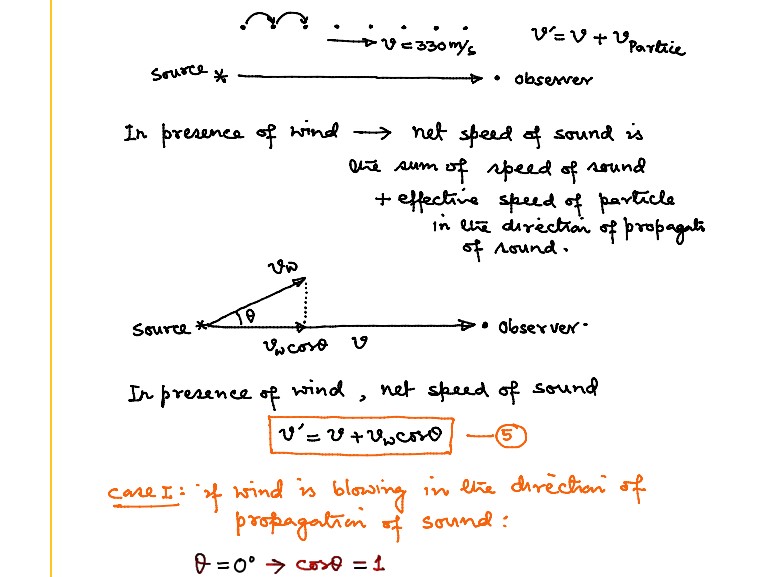 v = 330 m/s
v' = v + v Partice
Source * • observer
In presence of wind → net speed of sound is
the sum of speed of sound
+ effective speed of particle
in the direction of propagati
of sound.
vw
θ
Source * • observer.
vw cosθ v
In presence of wind, net speed of sound
v' = v + vw cosθ — 5
Case I: if wind is blowing in the direction of
propagation of sound:
θ = 0° → cosθ = 1